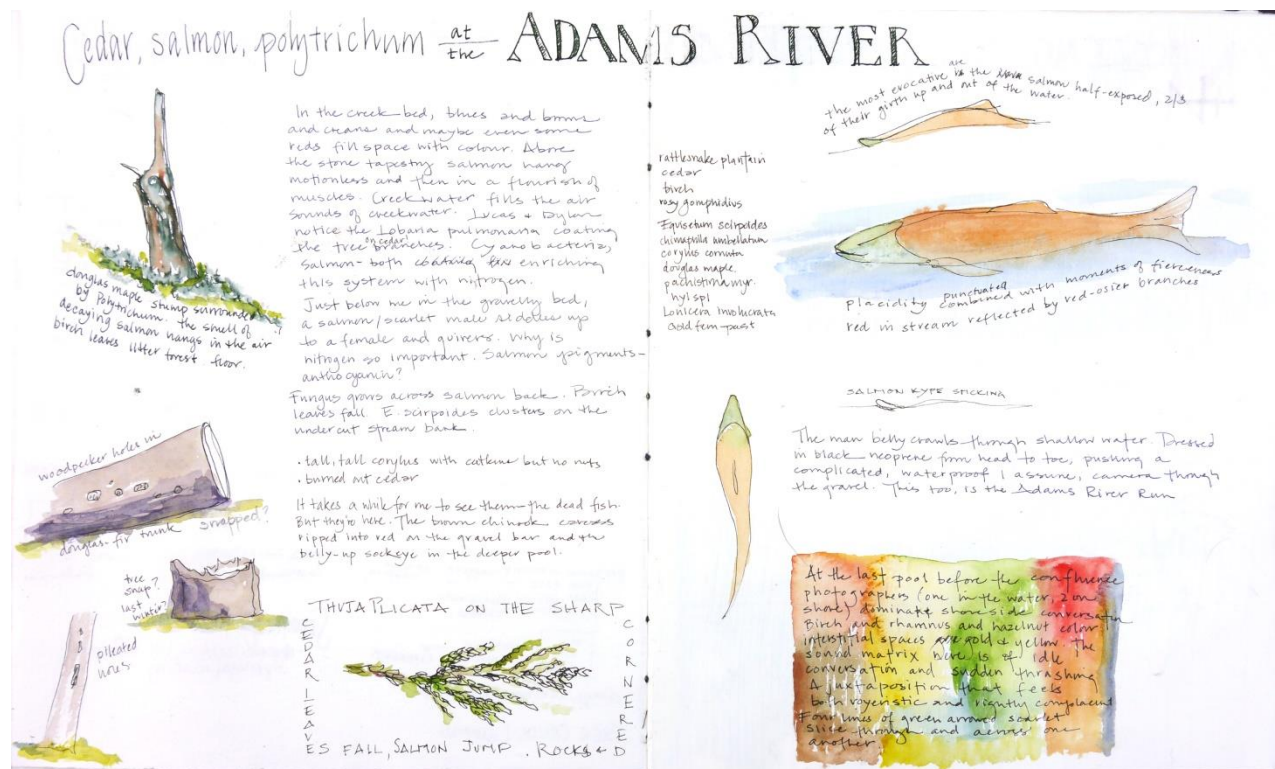 Cedar, salmon, polytrichum at the ADAMS RIVER
douglas maple stump surrounded
by Polytrichum. The smell of
decaying salmon hangs in the air
birch leaves litter forest floor.
woodpecker holes in
douglas-fir trunk snapped?
tree
snap?
last
winter?
pileated
holes
In the creek bed, blues and browns
and creams and maybe even some
reds fill space with colour. Above
the stone tapestry salmon hang
motionless and then in a flourish of
muscles. Creekwater fills the air
sounds of creekwater. Lucas & Dylan
notice the Lobaria pulmonaria coating
the tree branches. on cedar! Cyanobacteria,
salmon - both enriching
this system with nitrogen.
Just below me in the gravelly bed,
a salmon/scarlet male sidles up
to a female and quivers. Why is
nitrogen so important. Salmon pigments -
anthocyanin?
Fungus grows across salmon back. Birch
leaves fall. E. scirpoides clusters on the
undercut stream bank.
• tall, tall corylus with catkins but no nuts
• burned out cedar
It takes a while for me to see them - the dead fish.
But they're here. The brown chinook carcass
ripped into red on the gravel bar and the
belly-up sockeye in the deeper pool.
THUJA PLICATA ON THE SHARP
CORNERED
CEDAR LEAVES FALL, SALMON JUMP. ROCKS &
the most evocative are the salmon half-exposed, 2/3
of their girth up and out of the water.
rattlesnake plantain
cedar
birch
rosy gomphidius
Equisetum scirpoides
chimaphila umbellatum
corylus cornuta
douglas maple
pachistima myr.
hyl spl
Lonicera involucrata
placidity punctuated combined with moments of fierceness
red in stream reflected by red-osier branches
SALMON KYPE STICKING
The man belly crawls through shallow water. Dressed
in black neoprene from head to toe, pushing a
complicated, waterproof I assume, camera through
the gravel. This too, is the Adams River Run
At the last pool before the confluence
photographers (one in the water, 2 on
shore) dominate shoreside conversation
Birch and rhamnus and hazelnut colour
interstitial spaces are gold & yellow. The
sound matrix here is of idle
conversation and sudden thrashing
A juxtaposition that feels
both voyeristic and rightly complacent
Four lines of green arrowed scarlet
slice through and across one
another.